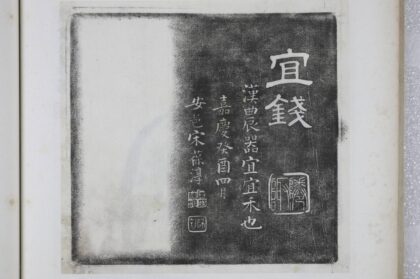 宜錢
漢曲辰器宜宜禾也
嘉慶癸酉四月
安邑宋葆淳